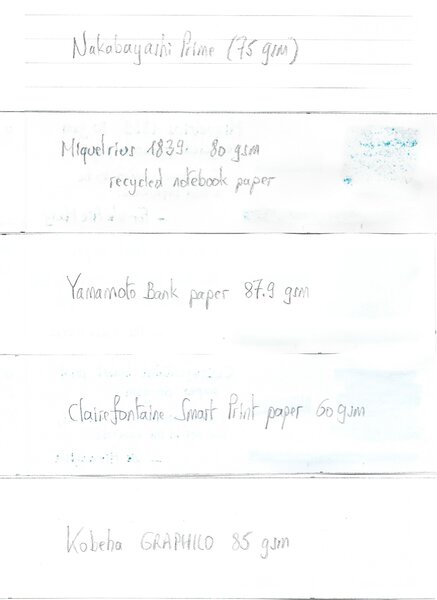 Nakabayashi Prime (75 gsm)
Miquelrius 1839. 80 gsm
recycled notebook paper
Yamamoto Bank paper 87.9 gsm
Clairefontaine Smart Print paper 60 gsm
Kobeha GRAPHILO 85 gsm